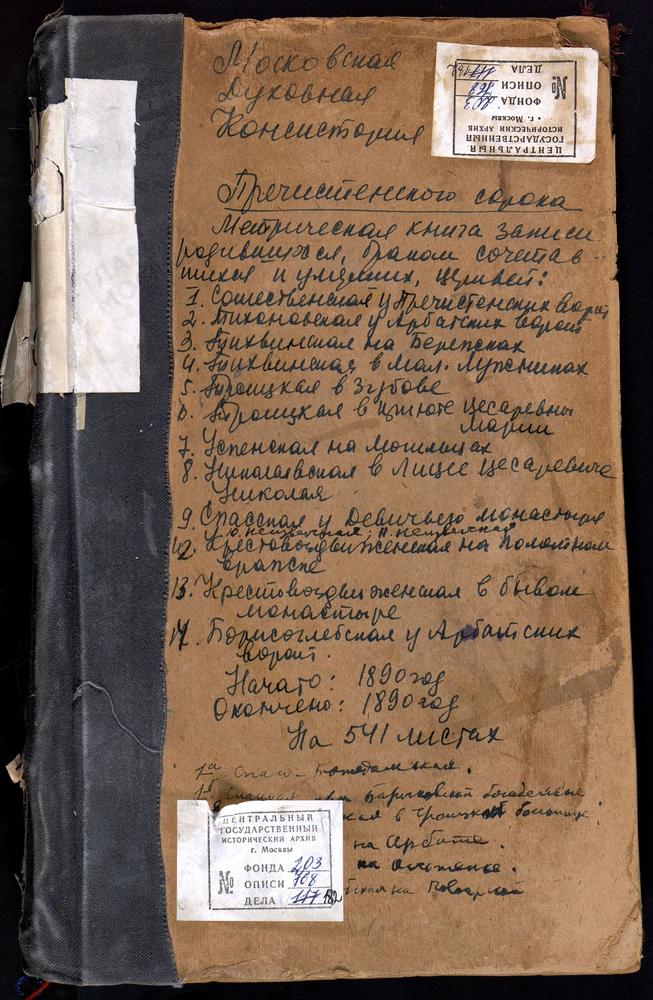 Московская
Духовная
Консистория
ЦЕНТРАЛЬНЫЙ
ГОСУДАРСТВЕННЫЙ
ИСТОРИЧЕСКИЙ АРХИВ
г. Москвы
№
ФОНДА 203
ОПИСИ 768
ДЕЛА
Пречистенского сорока
Метрическая книга записи
родившихся, браком сочетав-
шихся и умерших, церквей:
1. Сошественская у Пречистенских ворот
2. Тихоновская у Арбатских ворот
3. Тихвинская на Бережках
4. Тихвинская в Мал. Лужниках
5. Троицкая в Зубове
6. Троицкая в приюте цесаревны
Марии
7. Успенская на Могильцах
8. Николаевская в Лицее Цесаревича
Николая
9. Спасская у Девичьего монастыря
10. Неизвестная, 11. Неизвестная
12. Крестовоздвиженская на Полотном
вражке
13. Крестовоздвиженская в бывом
монастыре
14. Борисоглебская у Арбатских
ворот.
Начато: 1890 год
Окончено: 1890 год
На 541 листах
1а. Спасо-Божедомская.
1б Спасская при Барыковской богадельне
кая в Троицкой больнице.
на Арбате.
на
на Поварской
ЦЕНТРАЛЬНЫЙ
ГОСУДАРСТВЕННЫЙ
ИСТОРИЧЕСКИЙ АРХИВ
г. Москвы
№
ФОНДА 203
ОПИСИ 768
ДЕЛА 182